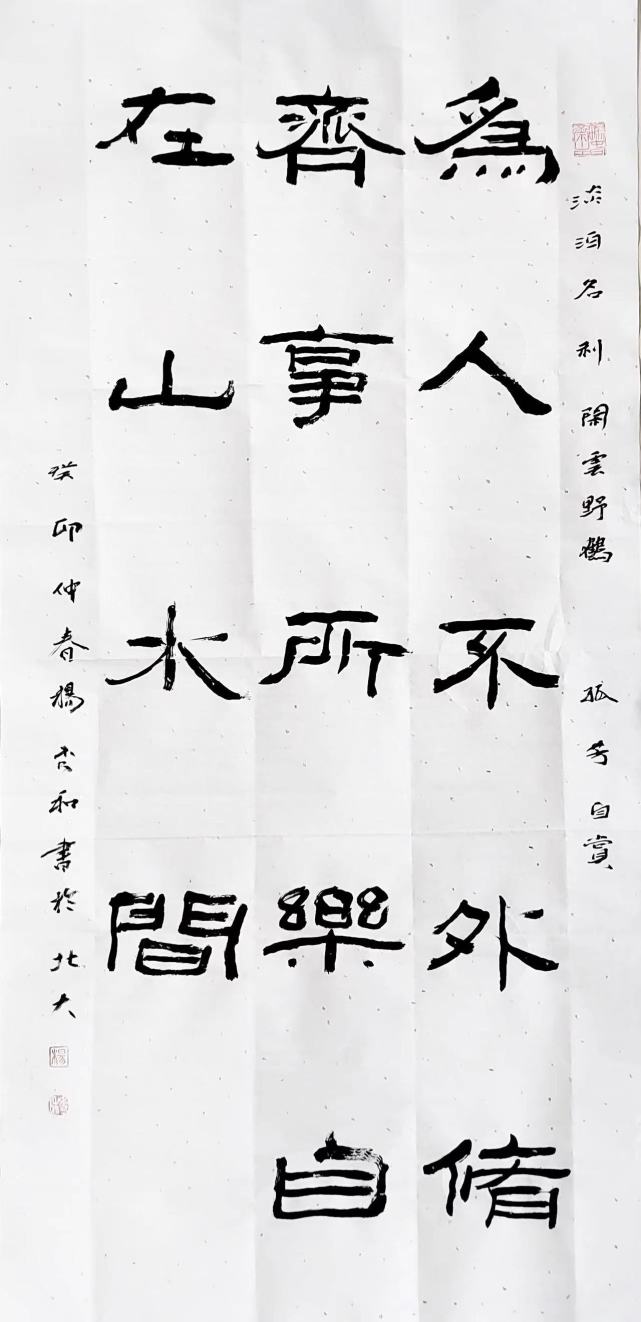 淡泊名利 閑雲野鶴 孤芳自賞
為人不外脩
齊事所樂自
在山水間
癸卯仲春楊和書於北大
楊